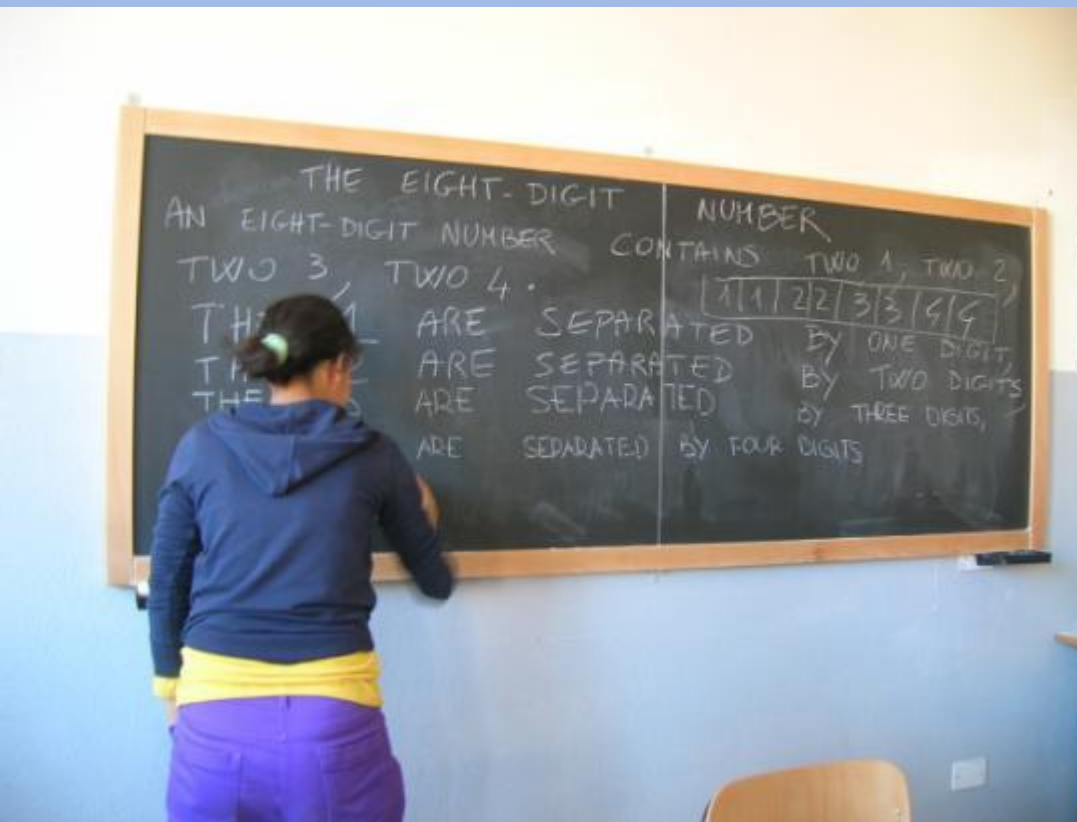 THE EIGHT-DIGIT NUMBER
AN EIGHT-DIGIT NUMBER CONTAINS TWO 1, TWO 2,
TWO 3, TWO 4.
1 1 2 2 3 3 4 4
1 ARE SEPARATED BY ONE DIGIT,
ARE SEPARATED BY TWO DIGITS,
ARE SEPARATED BY THREE DIGITS,
ARE SEPARATED BY FOUR DIGITS